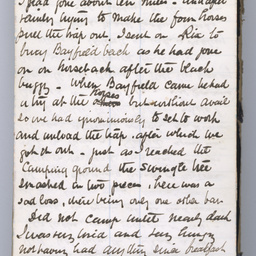 I had gone about ten miles - and after
vainly trying to make the four horses
pull the trap out, I sent on Rix to
bring Bayfield back as he had gone
on on horseback after the black
buggy - When Bayfield came he had
a try at the horses but without avail
so we had ignominiously to set to work
and unload the trap, after which we
got it out - just as I reached the
Camping ground the swingle tree
smashed in two pieces, here was a
sad loss, there being only one other bar.
Did not camp until nearly dark
I was very tired and very hungry
not having had anything since breakfast